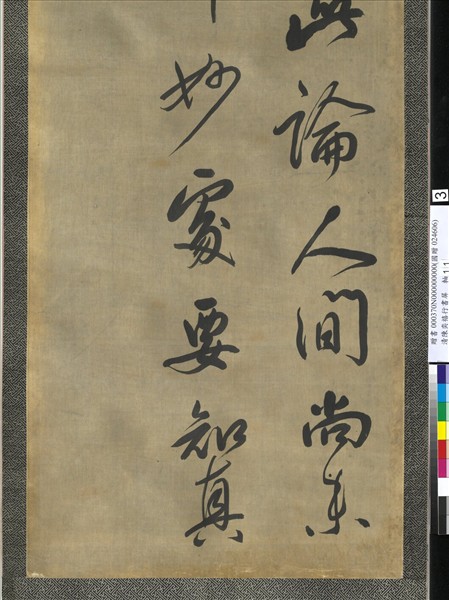 此論人間尚未
妙處要知真
3
贈書 000370N000000000(國贈 024606)
清陳奕禧行書屏 軸 11